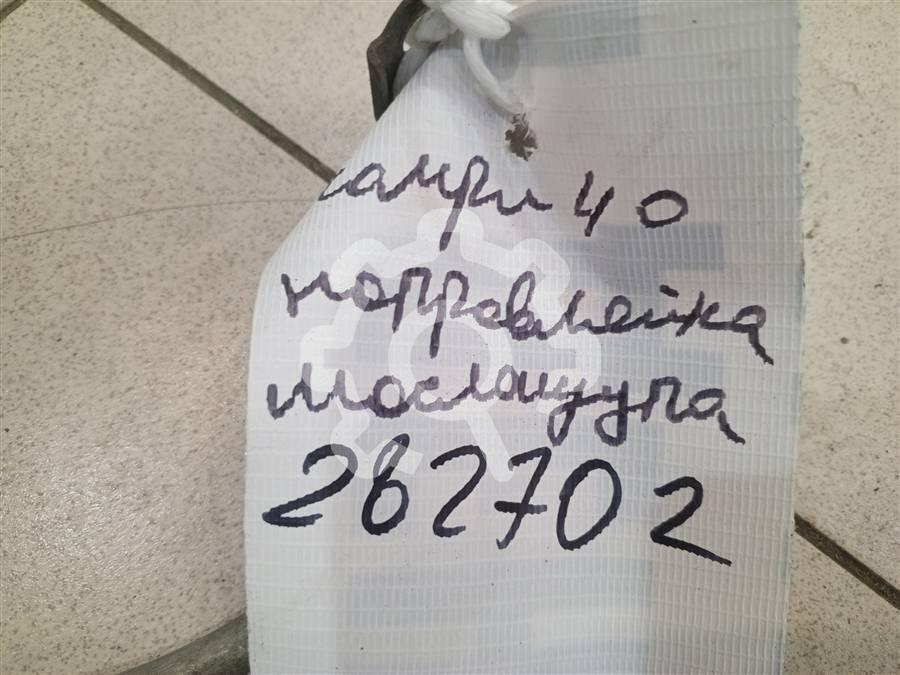 камри 40
направляйка
маслощупа
262702